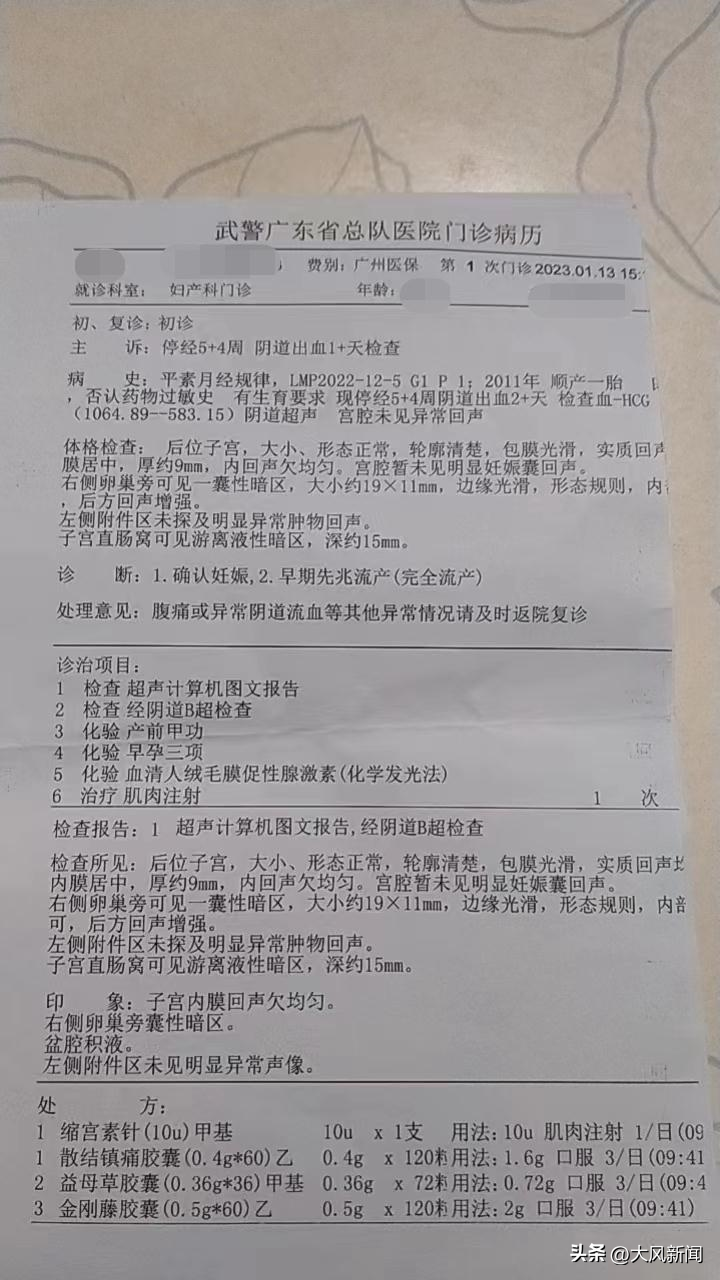 武警广东省总队医院门诊病历
费别：广州医保 第 1 次门诊 2023.01.13 15:
就诊科室： 妇产科门诊 年龄：
初、复诊：初诊
主 诉：停经5+4周 阴道出血1+天检查
病 史：平素月经规律，LMP2022-12-5 G1 P 1；2011年 顺产一胎
，否认药物过敏史 有生育要求 现停经5+4周阴道出血2+天 检查血-HCG
（1064.89--583.15）阴道超声 宫腔未见异常回声
体格检查： 后位子宫，大小、形态正常，轮廓清楚，包膜光滑，实质回声
膜居中，厚约9mm，内回声欠均匀。宫腔暂未见明显妊娠囊回声。
右侧卵巢旁可见一囊性暗区，大小约19×11mm，边缘光滑，形态规则，内
，后方回声增强。
左侧附件区未探及明显异常肿物回声。
子宫直肠窝可见游离液性暗区，深约15mm。
诊 断：1.确认妊娠,2.早期先兆流产(完全流产)
处理意见：腹痛或异常阴道流血等其他异常情况请及时返院复诊
诊治项目：
1 检查 超声计算机图文报告
2 检查 经阴道B超检查
3 化验 产前甲功
4 化验 早孕三项
5 化验 血清人绒毛膜促性腺激素(化学发光法)
6 治疗 肌肉注射 1 次
检查报告：1 超声计算机图文报告,经阴道B超检查
检查所见：后位子宫，大小、形态正常，轮廓清楚，包膜光滑，实质回声均
内膜居中，厚约9mm，内回声欠均匀。宫腔暂未见明显妊娠囊回声。
右侧卵巢旁可见一囊性暗区，大小约19×11mm，边缘光滑，形态规则，内部
可，后方回声增强。
左侧附件区未探及明显异常肿物回声。
子宫直肠窝可见游离液性暗区，深约15mm。
印 象：子宫内膜回声欠均匀。
右侧卵巢旁囊性暗区。
盆腔积液。
左侧附件区未见明显异常声像。
处 方：
1 缩宫素针(10u)甲基 10u x 1支 用法：10u 肌肉注射 1/日(09
1 散结镇痛胶囊(0.4g*60)乙 0.4g x 120粒 用法：1.6g 口服 3/日(09:41
2 益母草胶囊(0.36g*36)甲基 0.36g x 72粒 用法：0.72g 口服 3/日(09:4
3 金刚藤胶囊(0.5g*60)乙 0.5g x 120粒 用法：2g 口服 3/日(09:41)
头条 @大风新闻